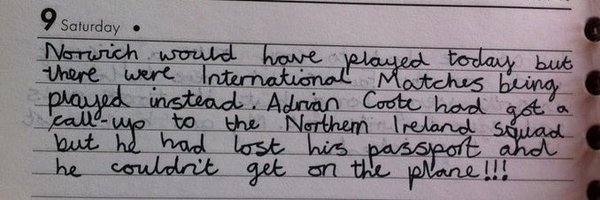 9 Saturday •
Norwich would have played today but
there were International Matches being
played instead. Adrian Coote had got a
call-up to the Northern Ireland squad
but he had lost his passport and
he couldn't get on the plane!!!